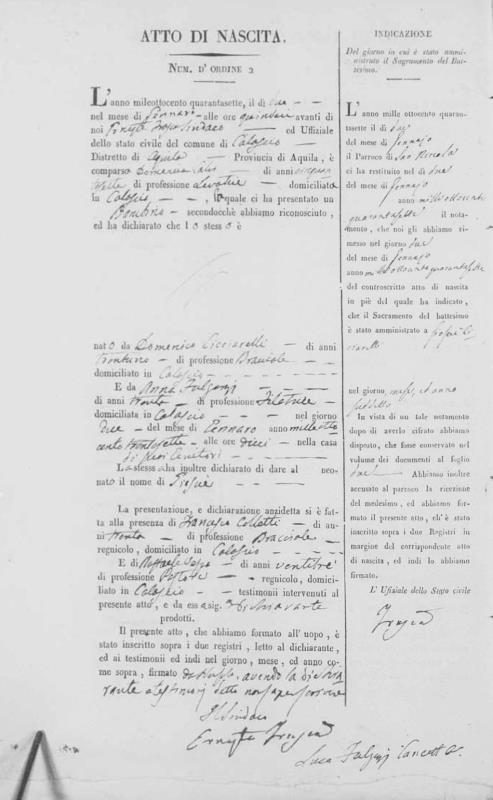 ATTO DI NASCITA.
NUM. D' ORDINE 2
L'anno milleottocento quarantasette, il dì due
nel mese di Gennaro alle ore quindici avanti di
noi Ernesto Sindaco ed Uffiziale
dello stato civile del comune di Calascio
Distretto di Aquila Provincia di Aquila, è
comparso di anni
di professione Levatrice domiciliato
in Calascio , la quale ci ha presentato un
Bambino secondocchè abbiamo riconosciuto,
ed ha dichiarato che lo stesso è
nato da Domenico Ciccarelli di anni
trentuno di professione Bracciale
domiciliato in Calascio
E da Anna Fulgenzi
di anni trenta di professione Filatrice
domiciliata in Calascio nel giorno
due del mese di Gennaro anno mille otto
cento alle ore dieci nella casa
di Genitori
La stessa ha inoltre dichiarato di dare al neo-
nato il nome di Giosuè
La presentazione, e dichiarazione anzidetta si è fat-
ta alla presenza di Francesco Colletti di an-
ni trenta di professione Bracciale
regnicolo, domiciliato in Calascio
E di Raffaele di anni ventitrè
di professione regnicolo, domici-
liato in Calascio testimonii intervenuti al
presente atto, e da essa sig. dichiarante
prodotti.
Il presente atto, che abbiamo formato all'uopo, è
stato inscritto sopra i due registri, letto al dichiarante,
ed ai testimonii ed indi nel giorno, mese, ed anno co-
me sopra, firmato da Noi, avendo la dichia
rante e testimonj detto non saper scrivere
Il Sindaco
Ernesto
Luca Fulgenzi Cancell.e
INDICAZIONE
Del giorno in cui è stato ammi-
nistrato il Sagramento del Bat-
tesimo.
L'anno mille ottocento quaran-
tasette il dì due
del mese di Gennajo
il Parroco di San Niccola
ci ha restituito nel dì due
del mese di Gennajo
anno milleottocento
quarantasette il nota-
mento, che noi gli abbiamo ri-
messo nel giorno due
del mese di Gennajo
anno milleottocentoquarantasette
del controscritto atto di nascita
in piè del quale ha indicato,
che il Sacramento del battesimo
è stato amministrato a Giosuè Cic
ciarelli
nel giorno, mese, ed anno
suddetto
In vista di un tale notamento
dopo di averlo cifrato abbiamo
disposto, che fosse conservato nel
volume dei documenti al foglio
due Abbiamo inoltre
accusato al parroco la ricezione
del medesimo, ed abbiamo for-
mato il presente atto, ch'è stato
inscritto sopra i due Registri in
margine del corrispondente atto
di nascita, ed indi lo abbiamo
firmato.
L' Ufiziale dello Stato civile